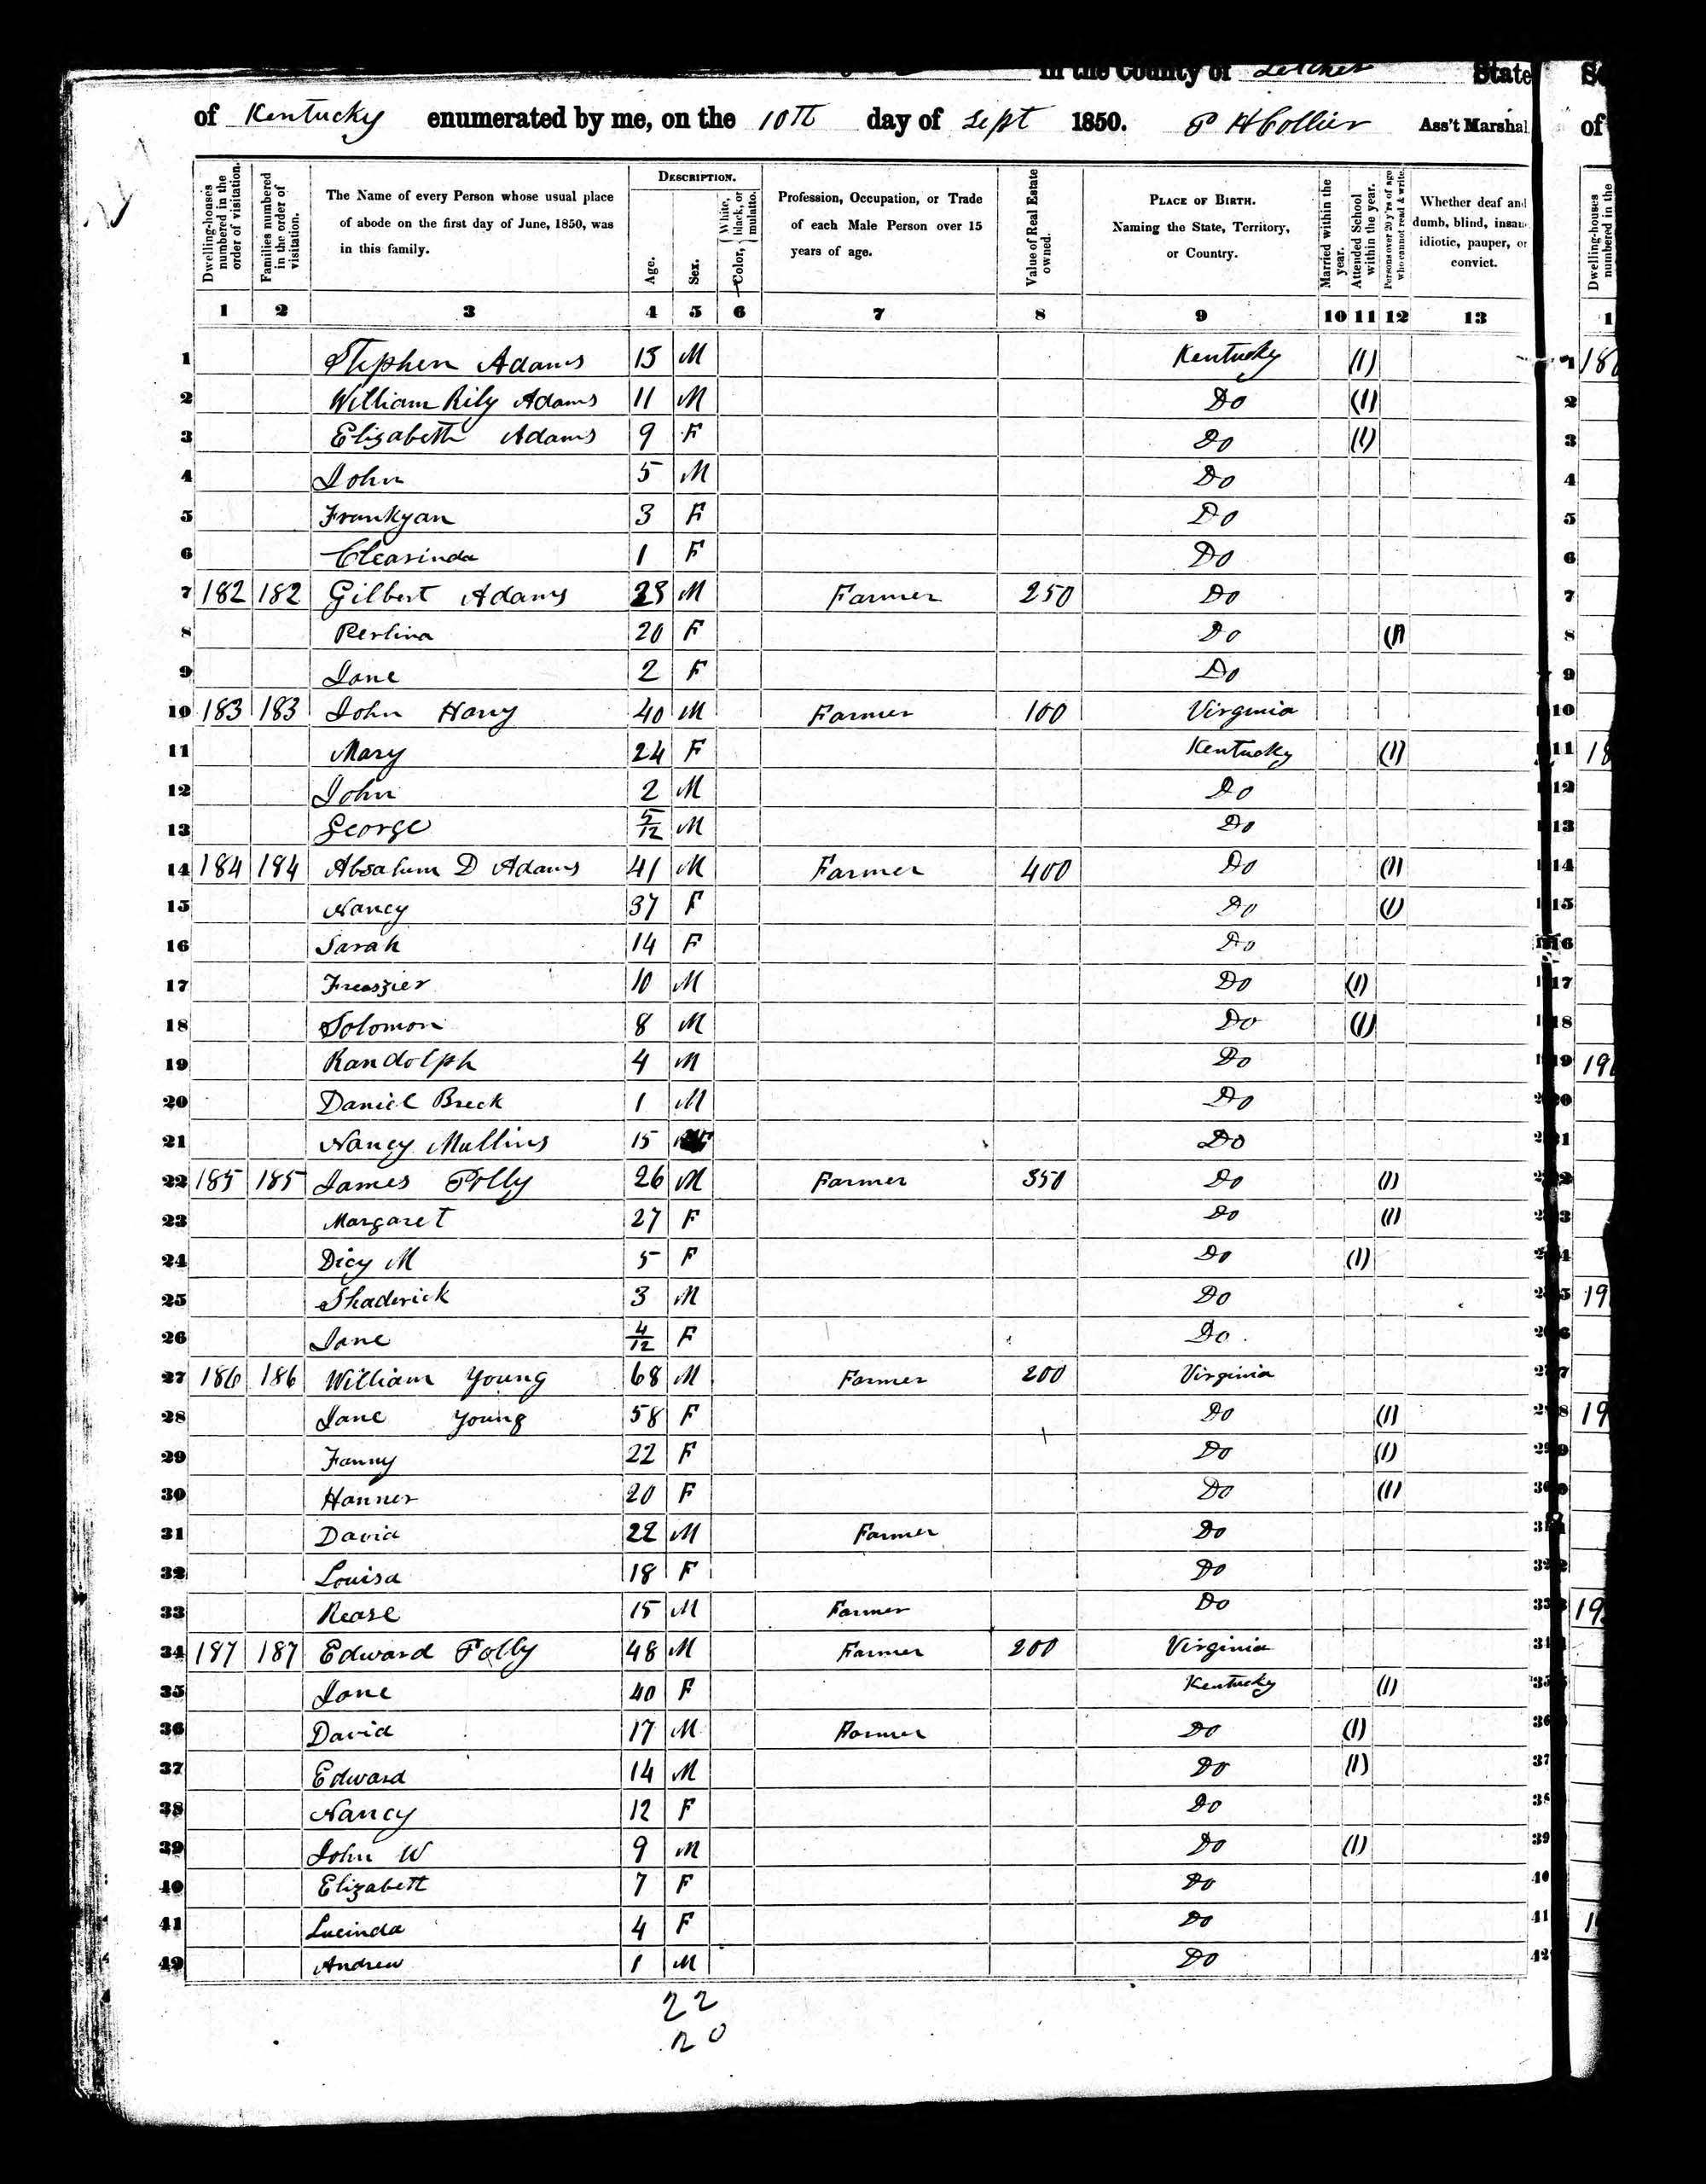 in the County of Letcher State
of Kentucky enumerated by me, on the 10th day of Sept 1850. P H Collier Ass't Marshal.
Dwelling-houses numbered in the order of visitation.
Families numbered in the order of visitation.
The Name of every Person whose usual place of abode on the first day of June, 1850, was in this family.
DESCRIPTION.
Age.
Sex.
Color, { White, black, or mulatto.
Profession, Occupation, or Trade of each Male Person over 15 years of age.
Value of Real Estate owned.
PLACE OF BIRTH. Naming the State, Territory, or Country.
Married within the year.
Attended School within the year.
Persons over 20 y'rs of age who cannot read & write.
Whether deaf and dumb, blind, insane, idiotic, pauper, or convict.
1 2 3 4 5 6 7 8 9 10 11 12 13
1 Stephen Adams 13 M Kentucky (1)
2 William Rily Adams 11 M Do (1)
3 Elizabeth Adams 9 F Do (1)
4 John 5 M Do
5 Frankyan 3 F Do
6 Clearinda 1 F Do
7 182 182 Gilbert Adams 23 M Farmer 250 Do
8 Perlina 20 F Do (1)
9 Jane 2 F Do
10 183 183 John Hany 40 M Farmer 100 Virginia
11 Mary 24 F Kentucky (1)
12 John 2 M Do
13 George 5/12 M Do
14 184 184 Absalum D Adams 41 M Farmer 400 Do (1)
15 Nancy 37 F Do (1)
16 Sarah 14 F Do
17 Freaszier 10 M Do (1)
18 Solomon 8 M Do (1)
19 Randolph 4 M Do
20 Daniel Breck 1 M Do
21 Nancy Mullins 15 Do
22 185 185 James Polly 26 M Farmer 350 Do (1)
23 Margaret 27 F Do (1)
24 Dicy M 5 F Do (1)
25 Shaderick 3 M Do
26 Jane 4/12 F Do
27 186 186 William Young 68 M Farmer 200 Virginia
28 Jane Young 58 F Do (1)
29 Fanny 22 F Do (1)
30 Hanner 20 F Do (1)
31 David 22 M Farmer Do
32 Louisa 18 F Do
33 Rease 15 M Farmer Do
34 187 187 Edward Polly 48 M Farmer 200 Virginia
35 Jane 40 F Kentucky (1)
36 David 17 M Farmer Do (1)
37 Edward 14 M Do (1)
38 Nancy 12 F Do
39 John W 9 M Do (1)
40 Elizabett 7 F Do
41 Lucinda 4 F Do
42 Andrew 1 M Do
22
20